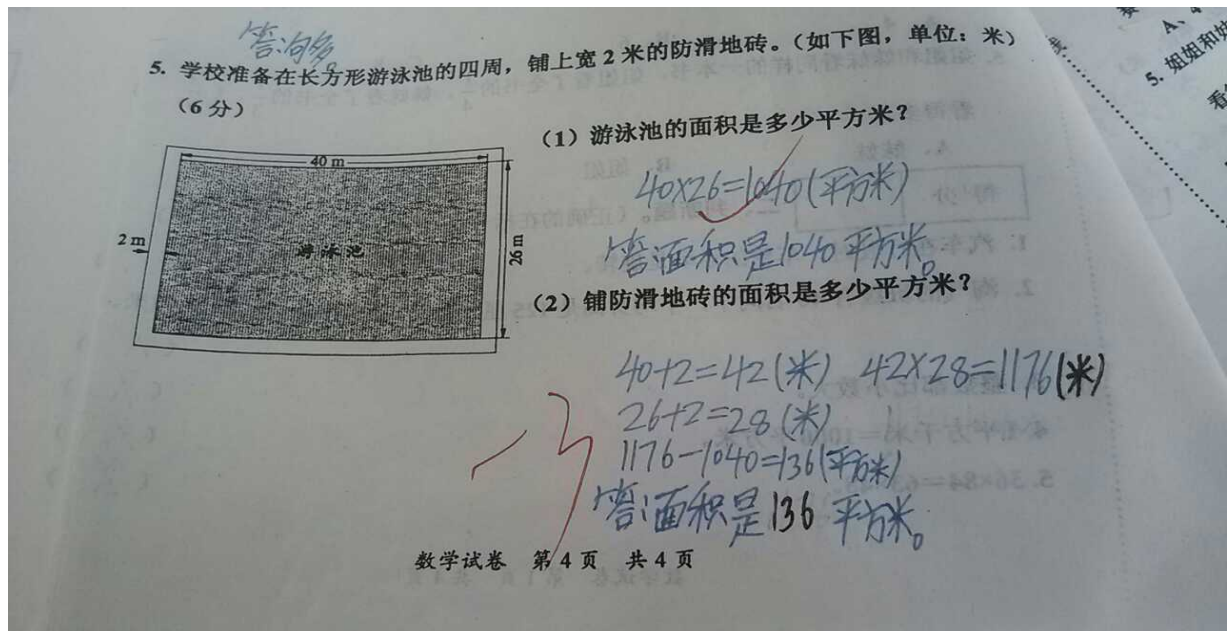 答:沟多。
5. 学校准备在长方形游泳池的四周，铺上宽 2 米的防滑地砖。（如下图，单位：米）
（6 分）
40 m
2 m
游泳池
26 m
（1）游泳池的面积是多少平方米？
40×26=1040(平方米)
答:面积是1040平方米。
（2）铺防滑地砖的面积是多少平方米？
40+2=42(米) 42×28=1176(米)
26+2=28(米)
1176-1040=136(平方米)
答:面积是136平方米。
-3
数学试卷 第 4 页 共 4 页
A、
5. 姐姐和妹
看